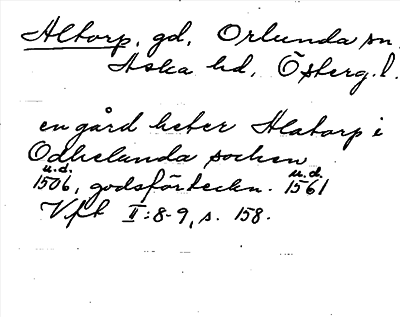 Altorp, gd, Orlunda sn.
Aska hd, Österg. l.
en gård heter Alatorp i
Odhelunda socken
u.d. u.d.
1506, godsförteckn. 1561
Vft II:8-9, s. 158.